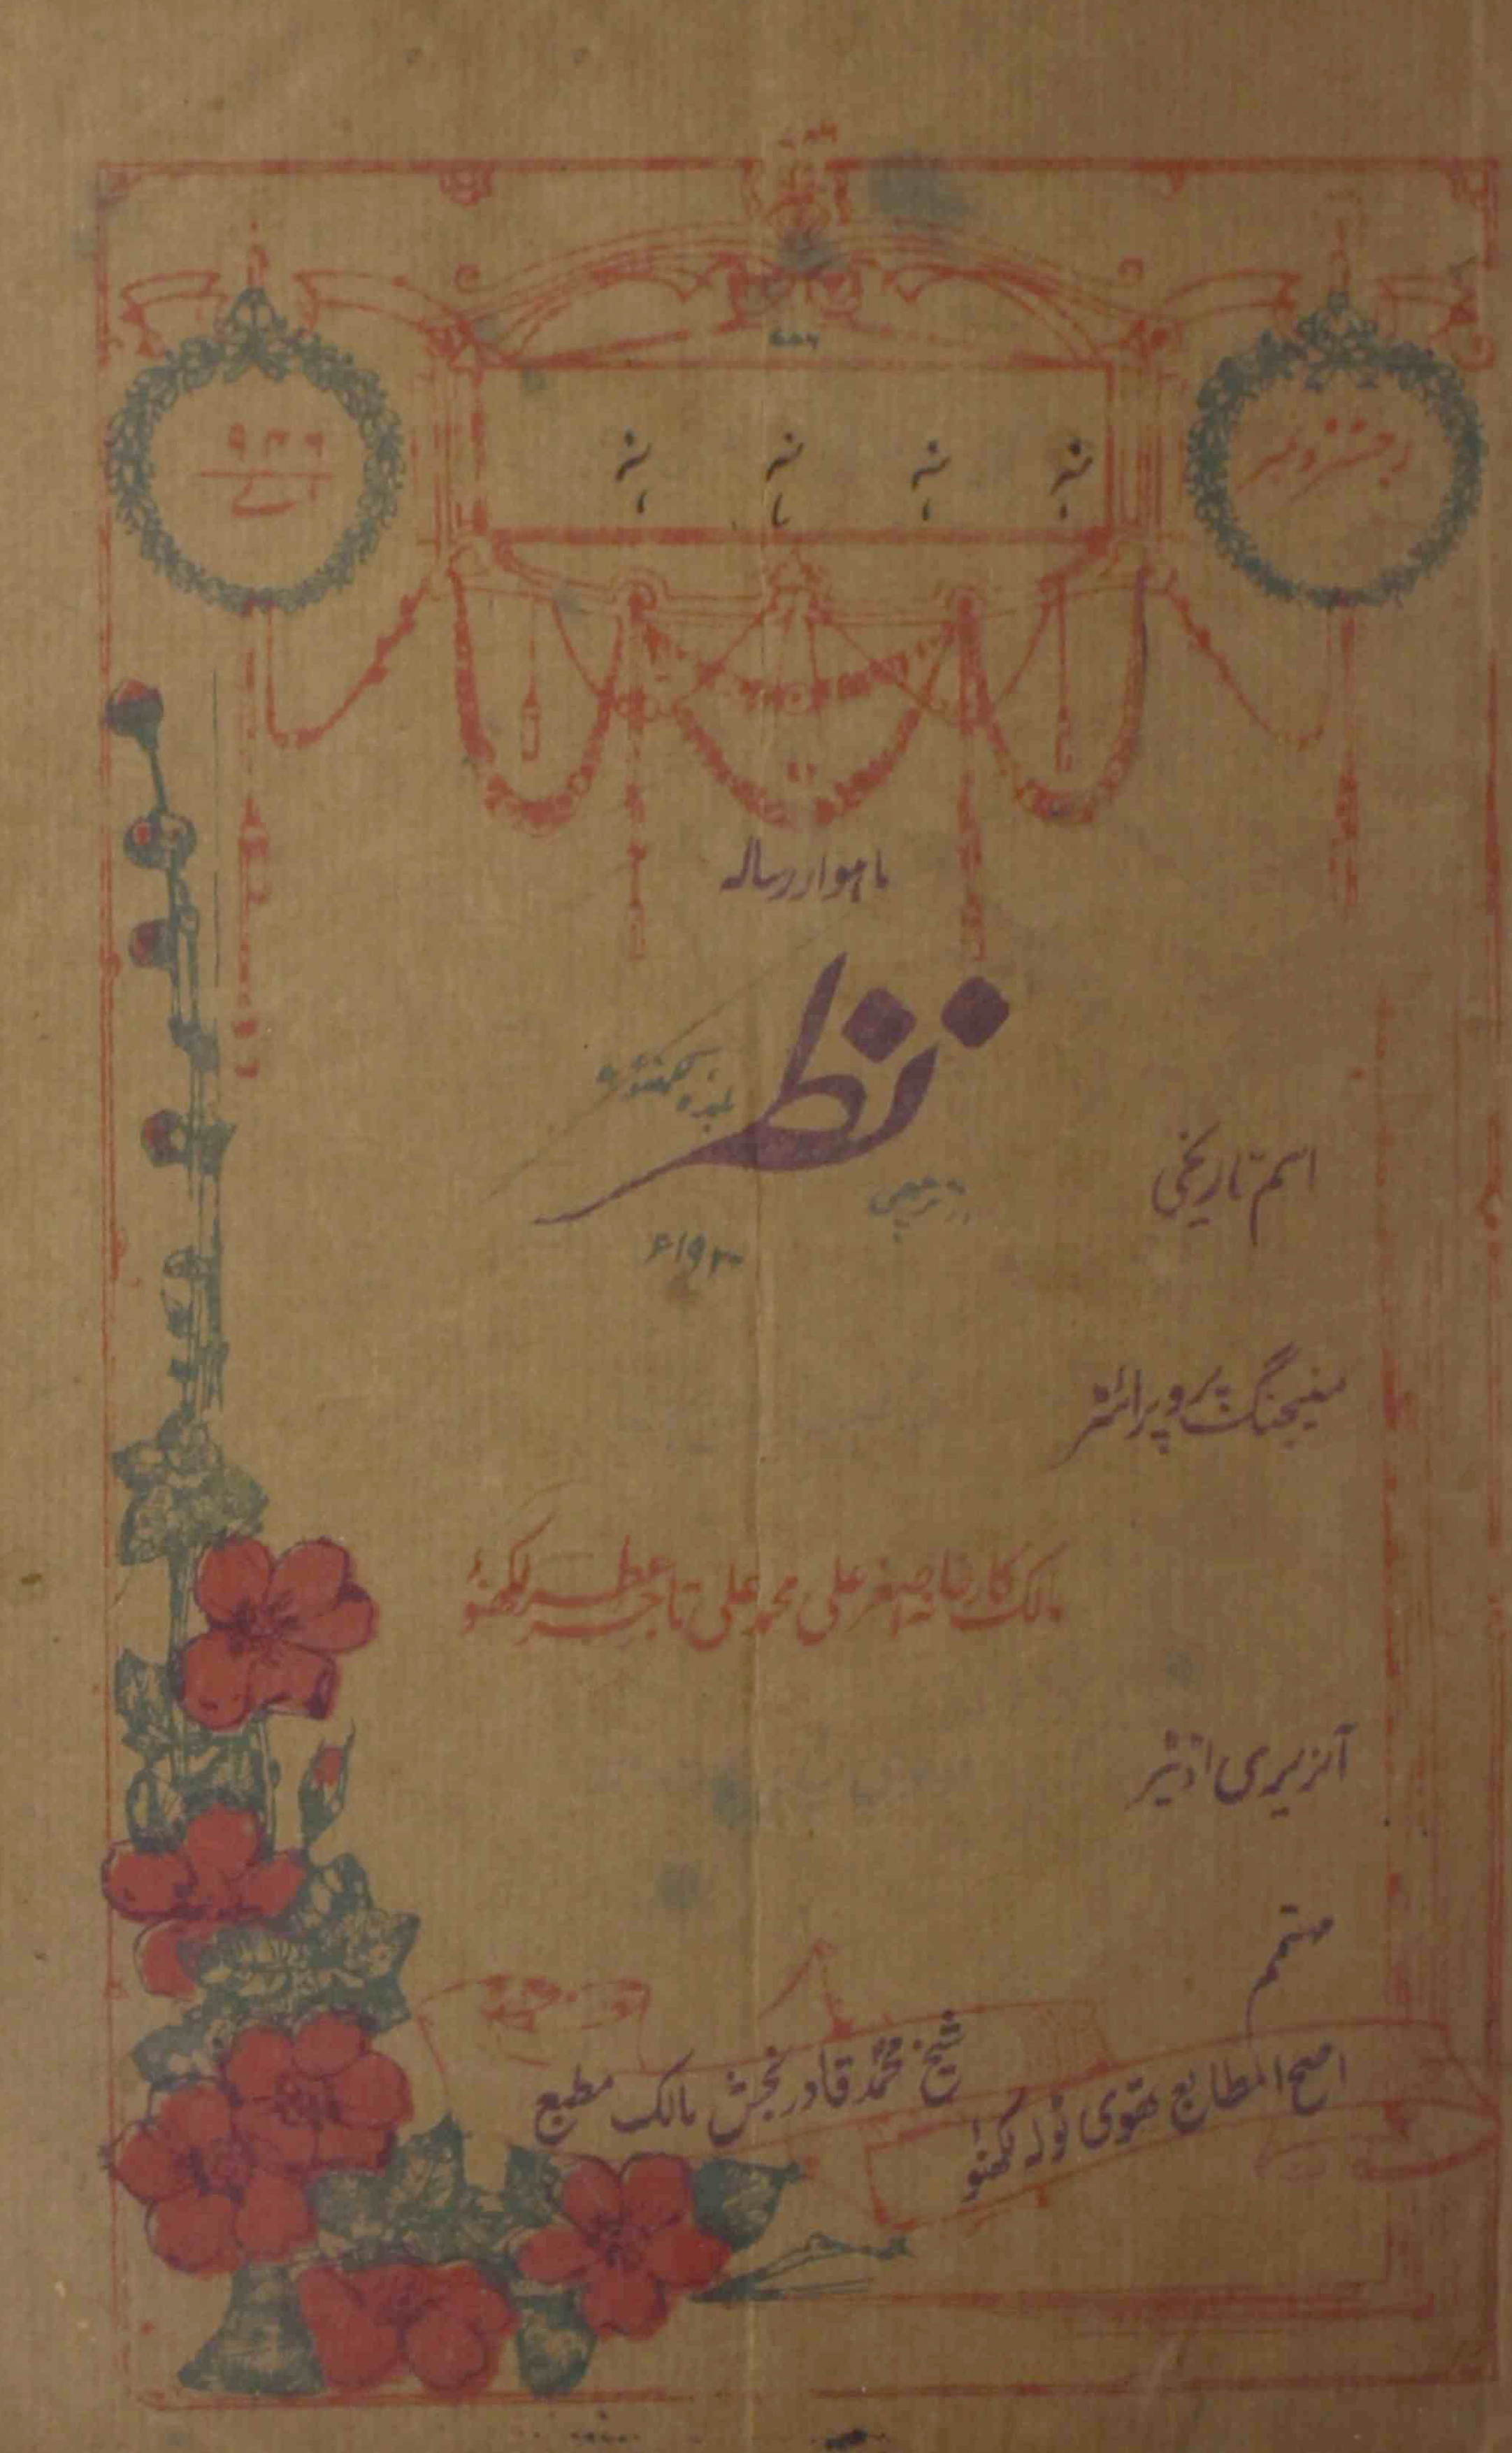 رجسٹرڈ نمبر
۹۳۶
اے
ماہوار رسالہ
نظر
۱۹۲۰ء
اسم تاریخی
منیجنگ پروپرائٹر
مالک کارخانہ اصغر علی محمد علی تاجر عطر لکھنؤ
آنریری اڈیٹر
مہتمم
شیخ محمد قادر بخش مالک مطبع
اصح المطابع تھوی ٹولہ لکھنؤ